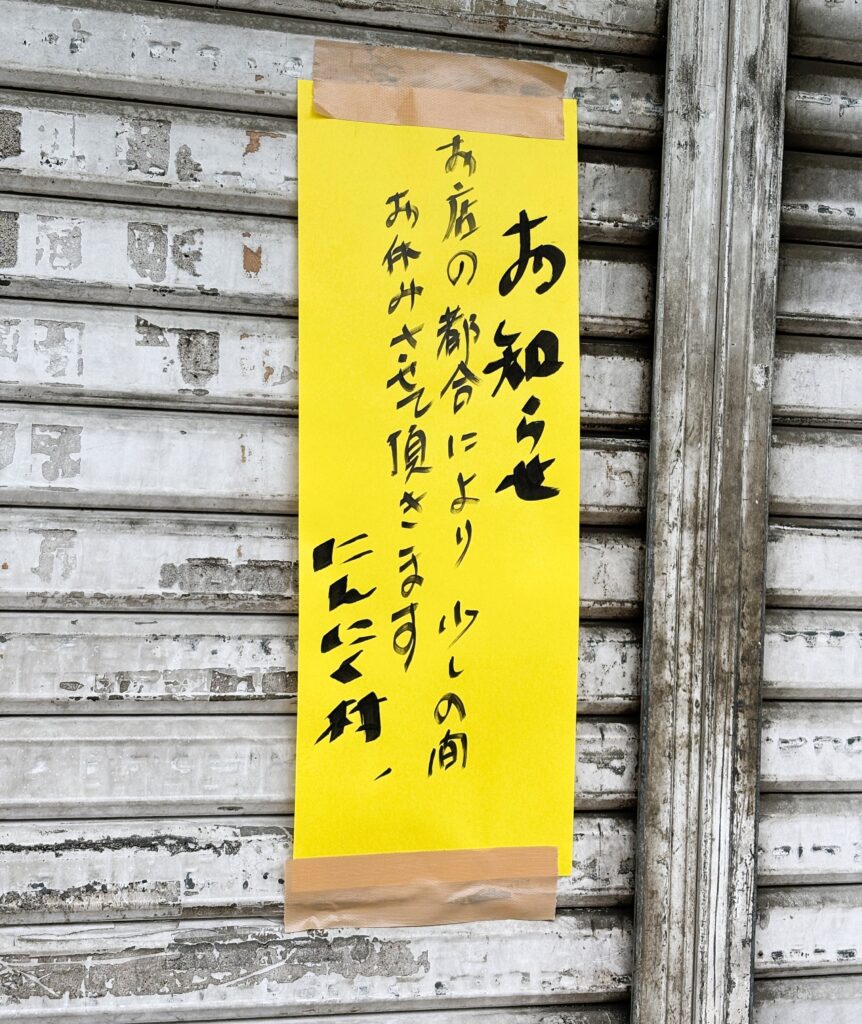 お知らせ
お店の都合により 少しの間
お休みさせて頂きます
にんにく村